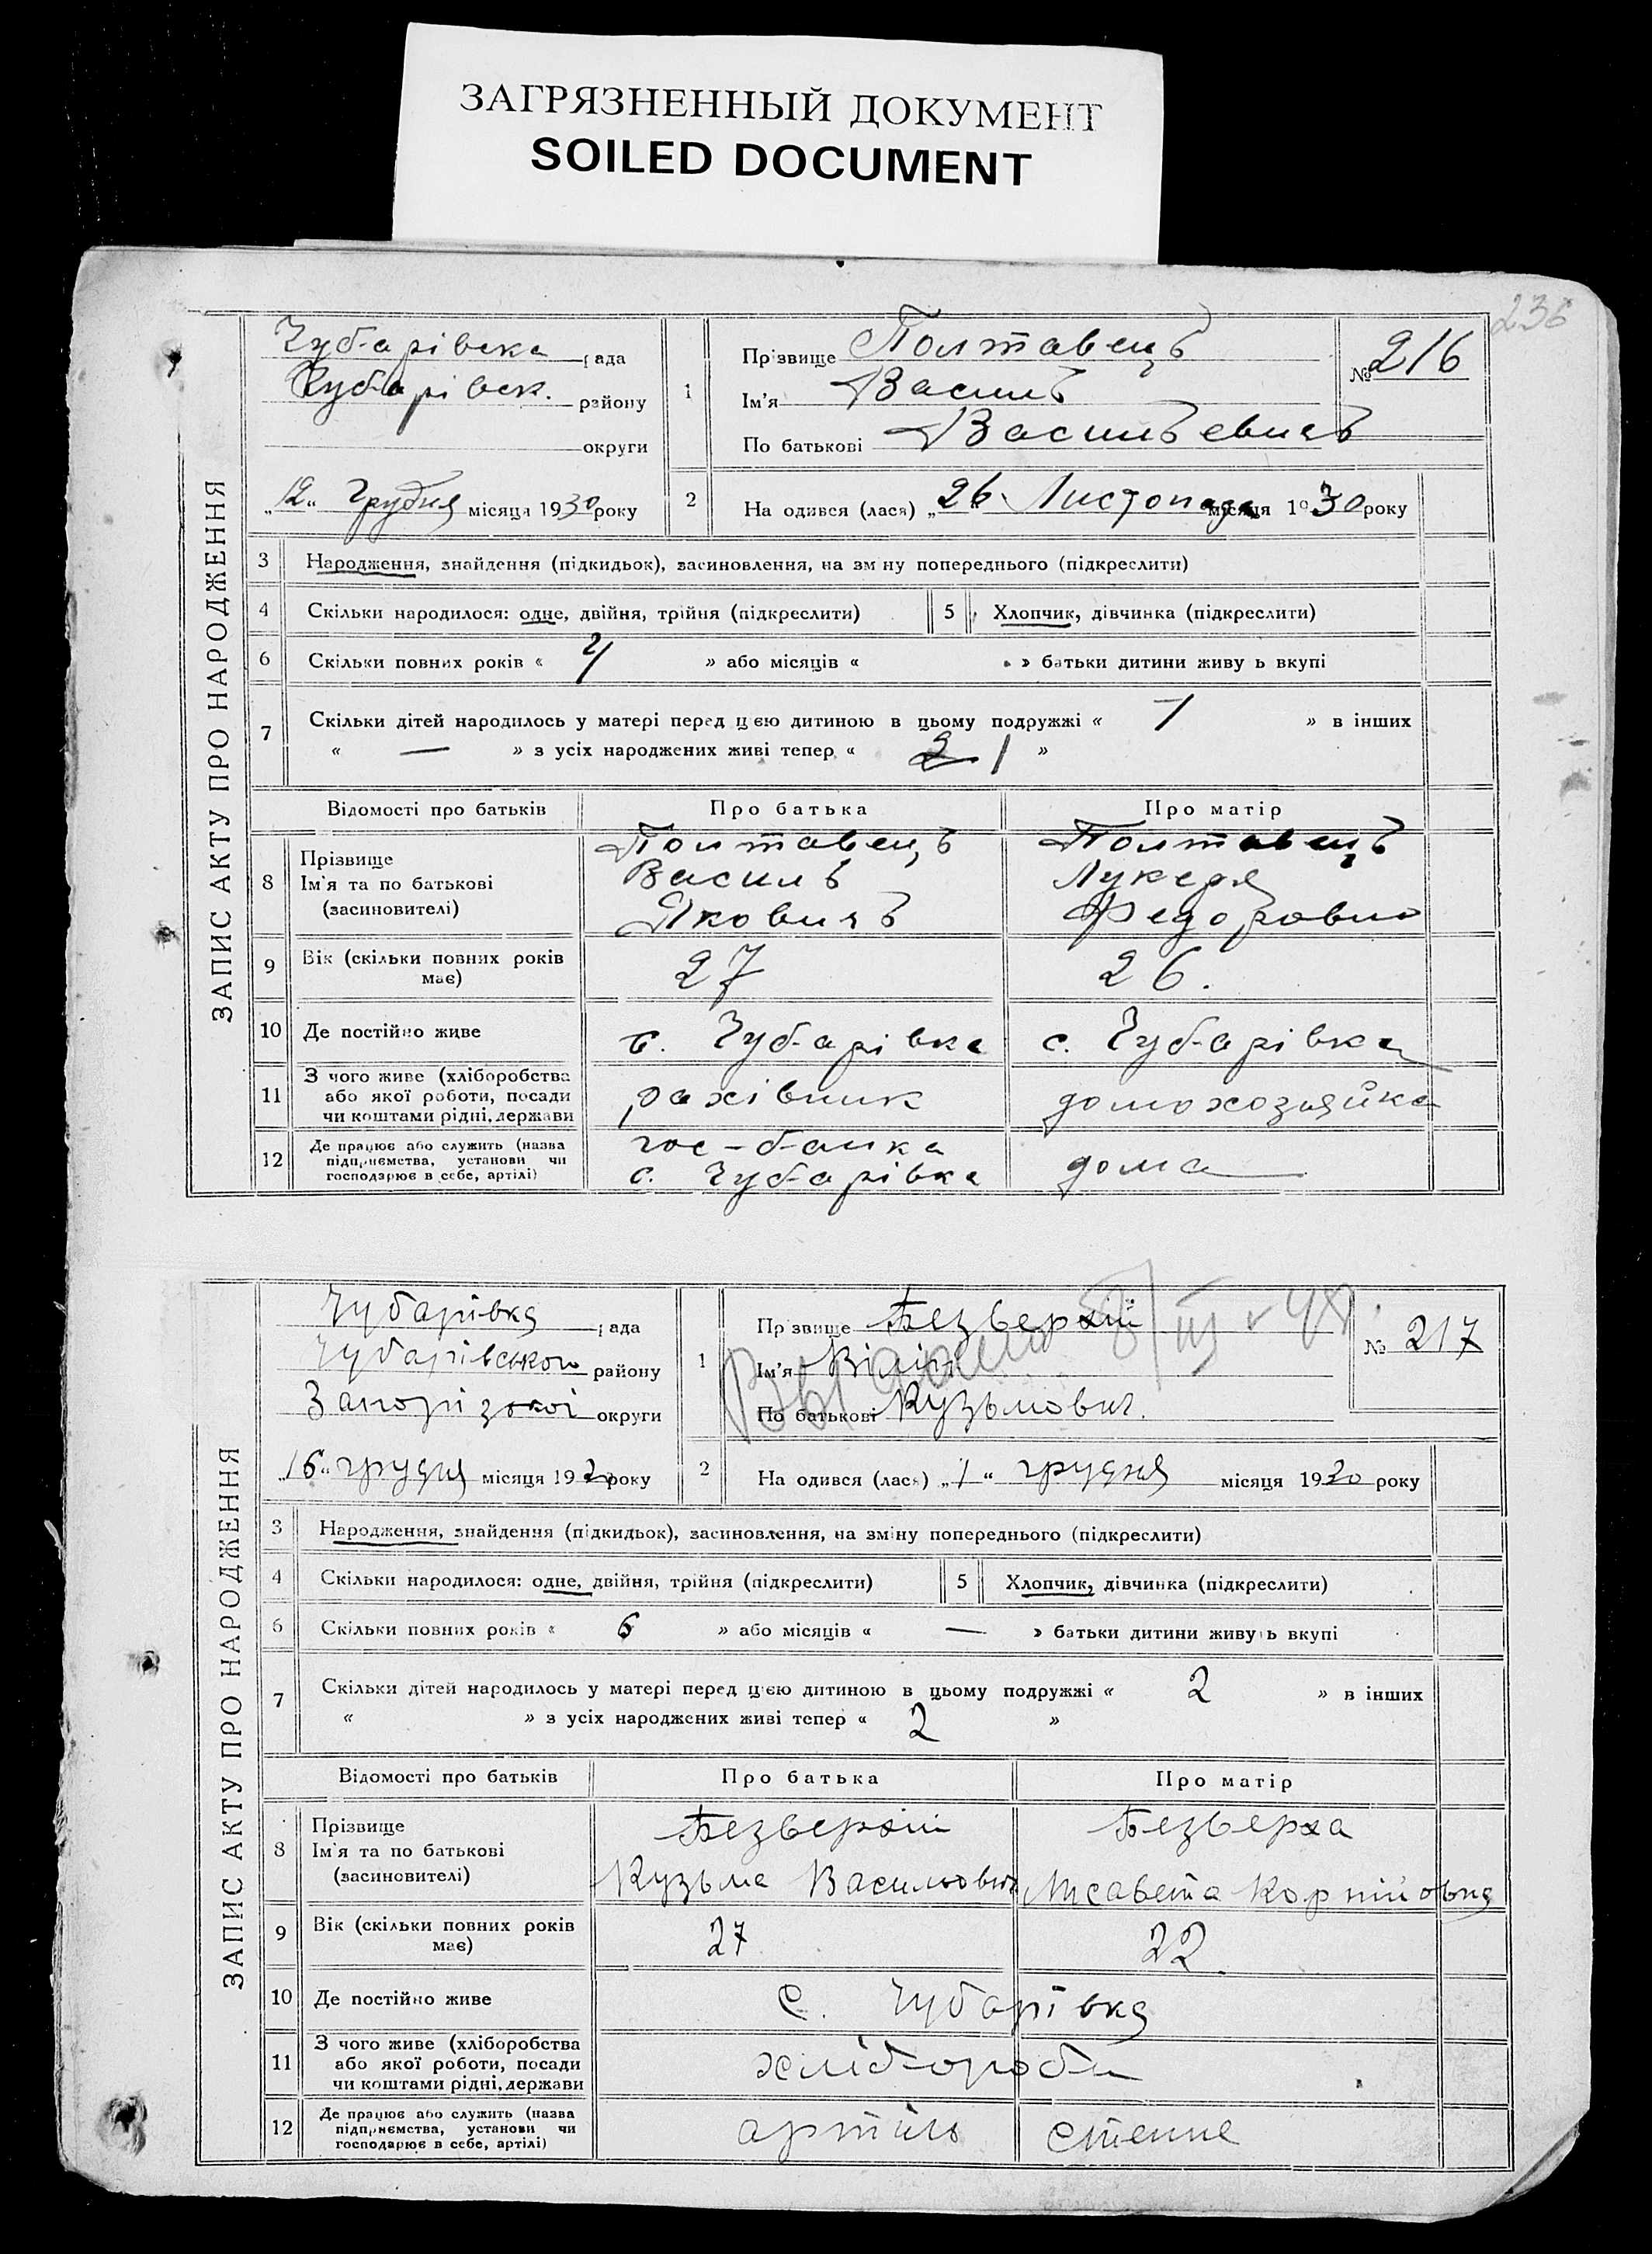 ЗАГРЯЗНЕННЫЙ ДОКУМЕНТ
SOILED DOCUMENT
236
ЗАПИС АКТУ ПРО НАРОДЖЕННЯ
Чубарівська рада
Чубарівськ. району
округи
„12“ Грудня місяця 1930 року
1
Прізвище Полтавець
Ім'я Василь
По батькові Васильевичь
№ 216
2
На одився (лася) „26“ Листопада місяця 1930 року
3 Народження, знайдення (підкидьок), засиновлення, на зміну попереднього (підкреслити)
4 Скільки народилося: одне, двійня, трійня (підкреслити)
5 Хлопчик, дівчинка (підкреслити)
6 Скільки повних років « 4 » або місяців « » батьки дитини живуть вкупі
7 Скільки дітей народилось у матері перед цією дитиною в цьому подружжі « 1 » в інших
« — » з усіх народжених живі тепер « 2 1 »
Відомості про батьків Про батька Про матір
8 Прізвище
Ім'я та по батькові
(засиновителі)
Полтавець
Василь
Яковичь
Полтавець
Лукеря
Федоровна
9 Вік (скільки повних років має) 27 26.
10 Де постійно живе с. Чубарівка с. Чубарівка
11 З чого живе (хліборобства
або якої роботи, посади
чи коштами рідні, держави
рахівник домохозяйка
12 Де працює або служить (назва
підприємства, установи чи
господарює в себе, артілі)
гос-банка
с. Чубарівка
дома
ЗАПИС АКТУ ПРО НАРОДЖЕННЯ
Чубарівка рада
Чубарівського району
Запорізької округи
„16“ грудня місяця 1930 року
1
Прізвище Безверхій
Ім'я
По батькові Кузьмович.
№ 217
2
На одився (лася) „1“ грудня місяця 1930 року
3 Народження, знайдення (підкидьок), засиновлення, на зміну попереднього (підкреслити)
4 Скільки народилося: одне, двійня, трійня (підкреслити)
5 Хлопчик, дівчинка (підкреслити)
6 Скільки повних років « 6 » або місяців « — » батьки дитини живуть вкупі
7 Скільки дітей народилось у матері перед цією дитиною в цьому подружжі « 2 » в інших
« » з усіх народжених живі тепер « 2 »
Відомості про батьків Про батька Про матір
8 Прізвище
Ім'я та по батькові
(засиновителі)
Безверхій
Кузьма Васильович
Безверха
Лисавета Корнійовна
9 Вік (скільки повних років має) 27 22
10 Де постійно живе с. Чубарівка
11 З чого живе (хліборобства
або якої роботи, посади
чи коштами рідні, держави
хлібороби
12 Де працює або служить (назва
підприємства, установи чи
господарює в себе, артілі)
артіль Степне